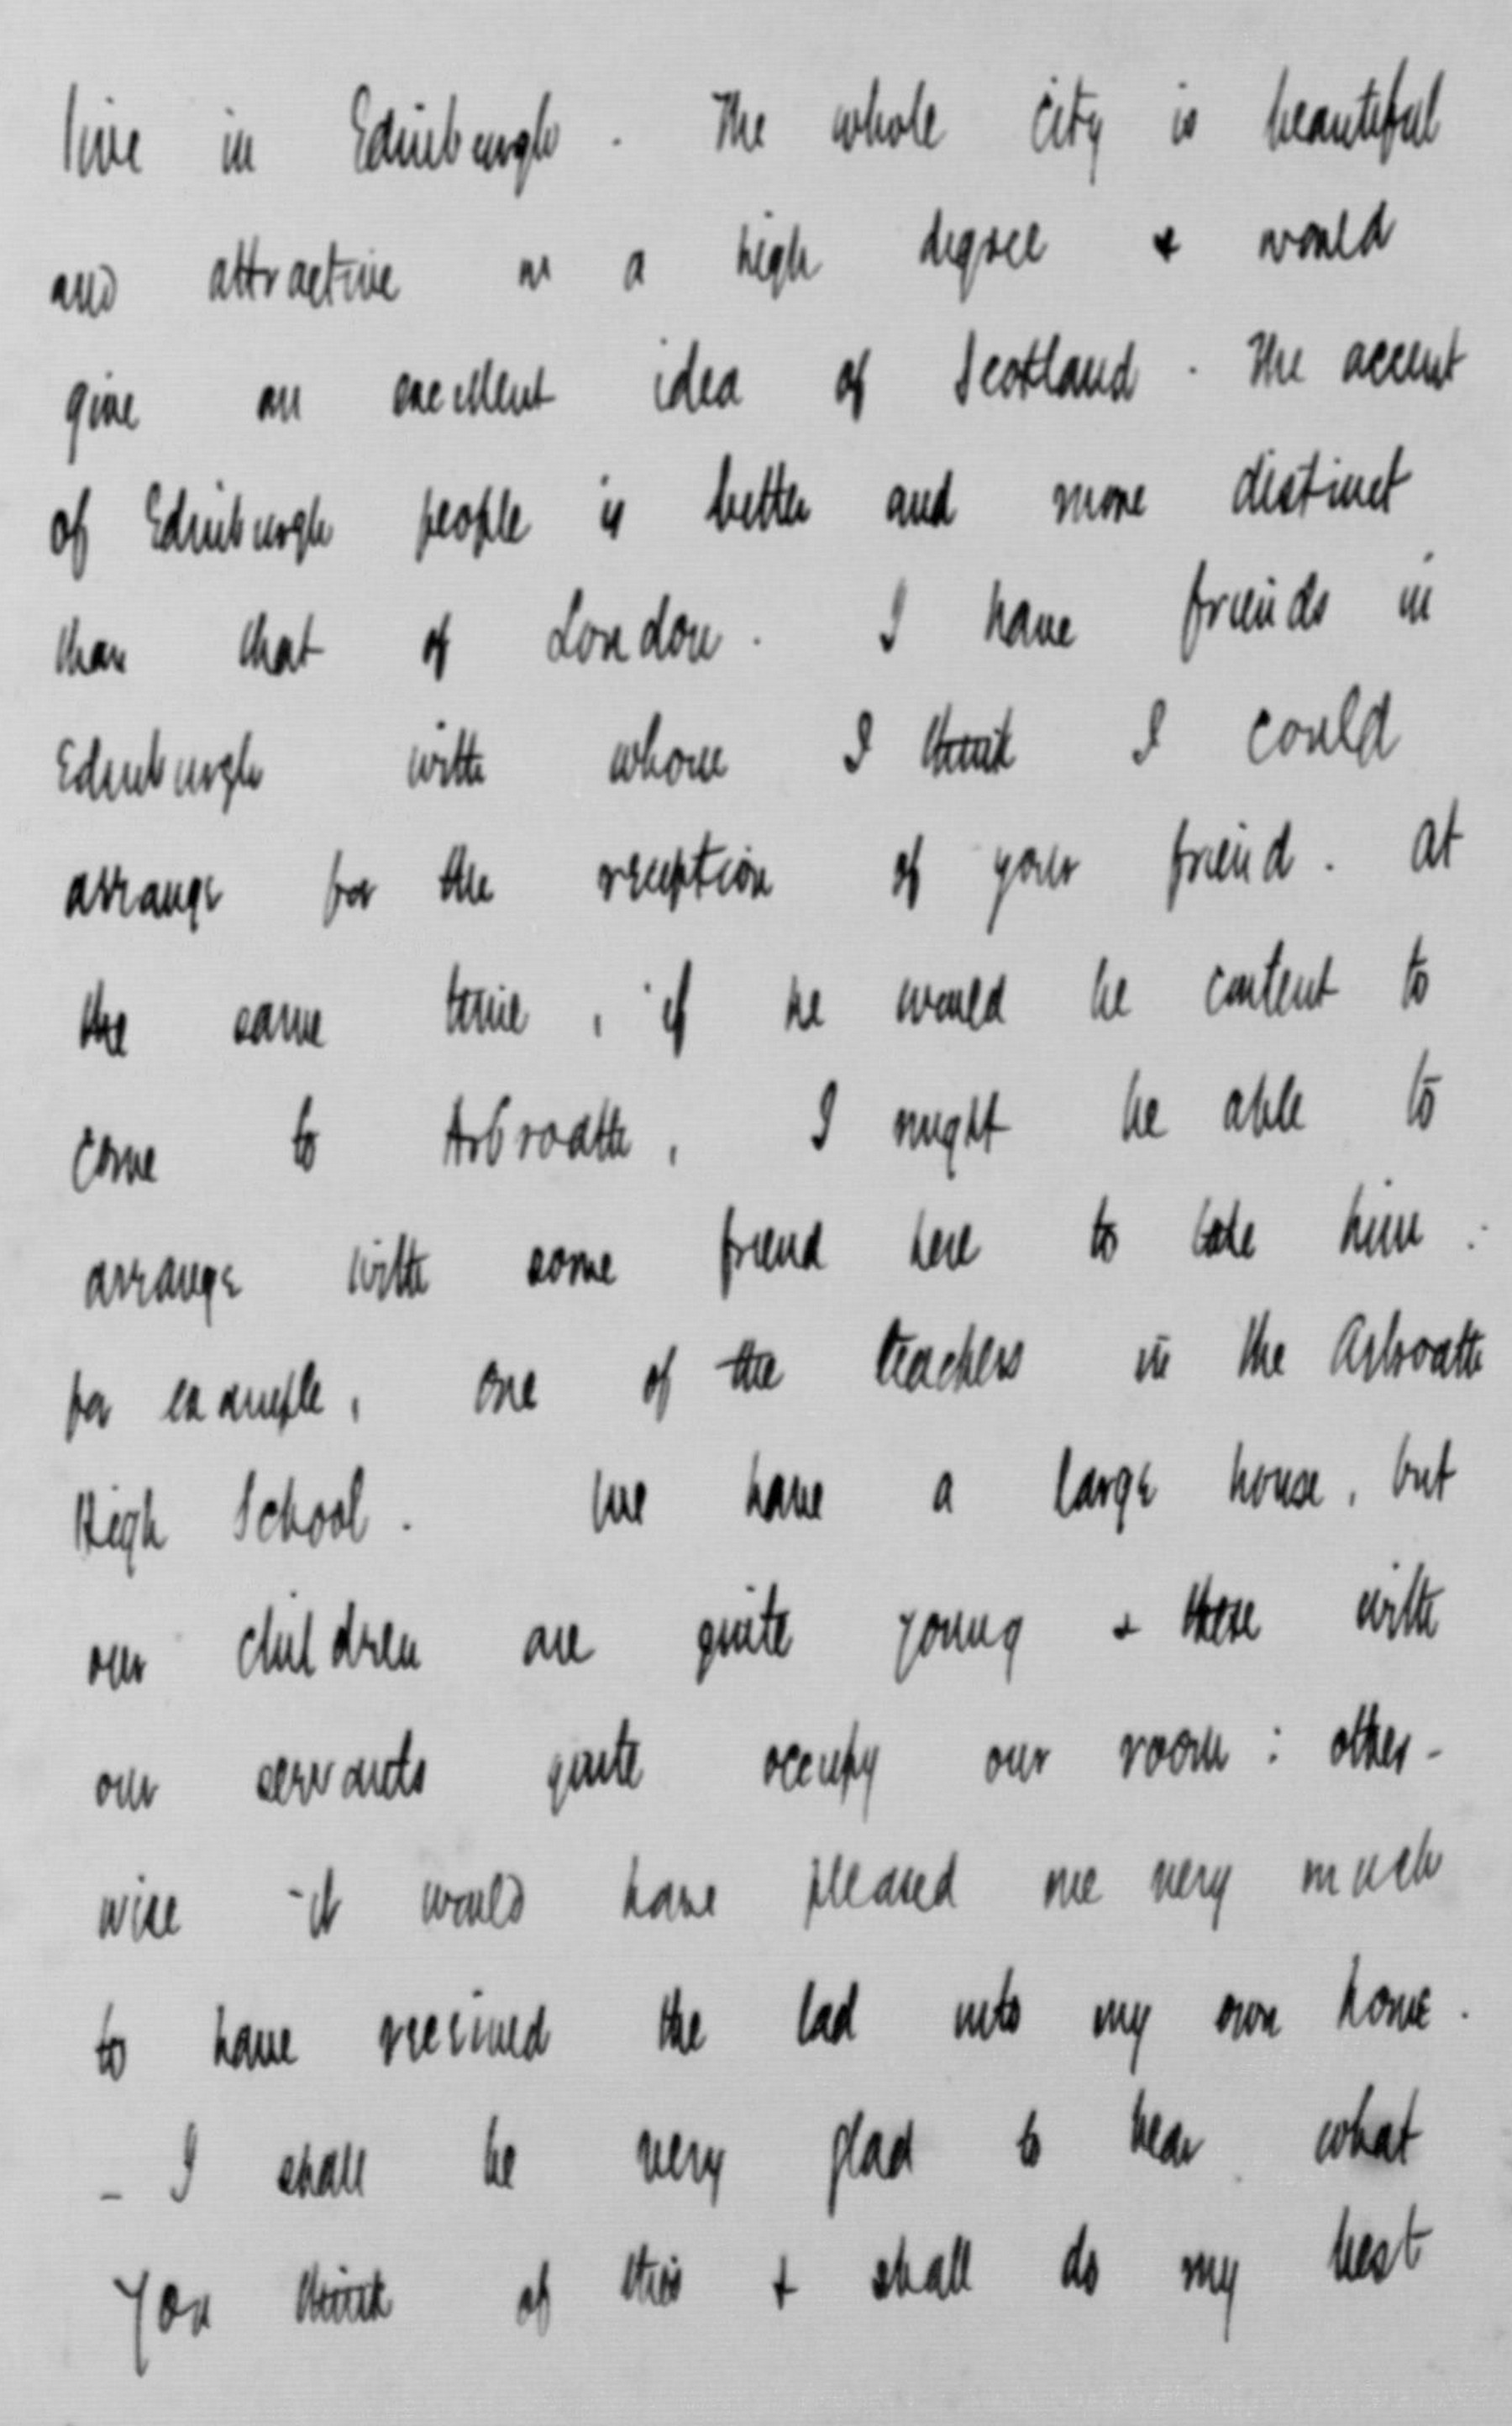 live in Edinburgh. The whole city is beautiful
and attractive in a high degree & would
give an excellent idea of Scotland. The accent
of Edinburgh people is better and more distinct
than that of London. I have friends in
Edinburgh with whom I think I could
arrange for the reception of your friend. At
the same time, if he would be content to
come to Arbroath, I might be able to
arrange with some friend here to take him:
for example, one of the teachers in the Arbroath
High School. We have a large house, but
our children are quite young & these with
our servants quite occupy our room: other-
wise it would have pleased me very much
to have received the lad into my own home.
- I shall be very glad to hear what
you think of this & shall do my best